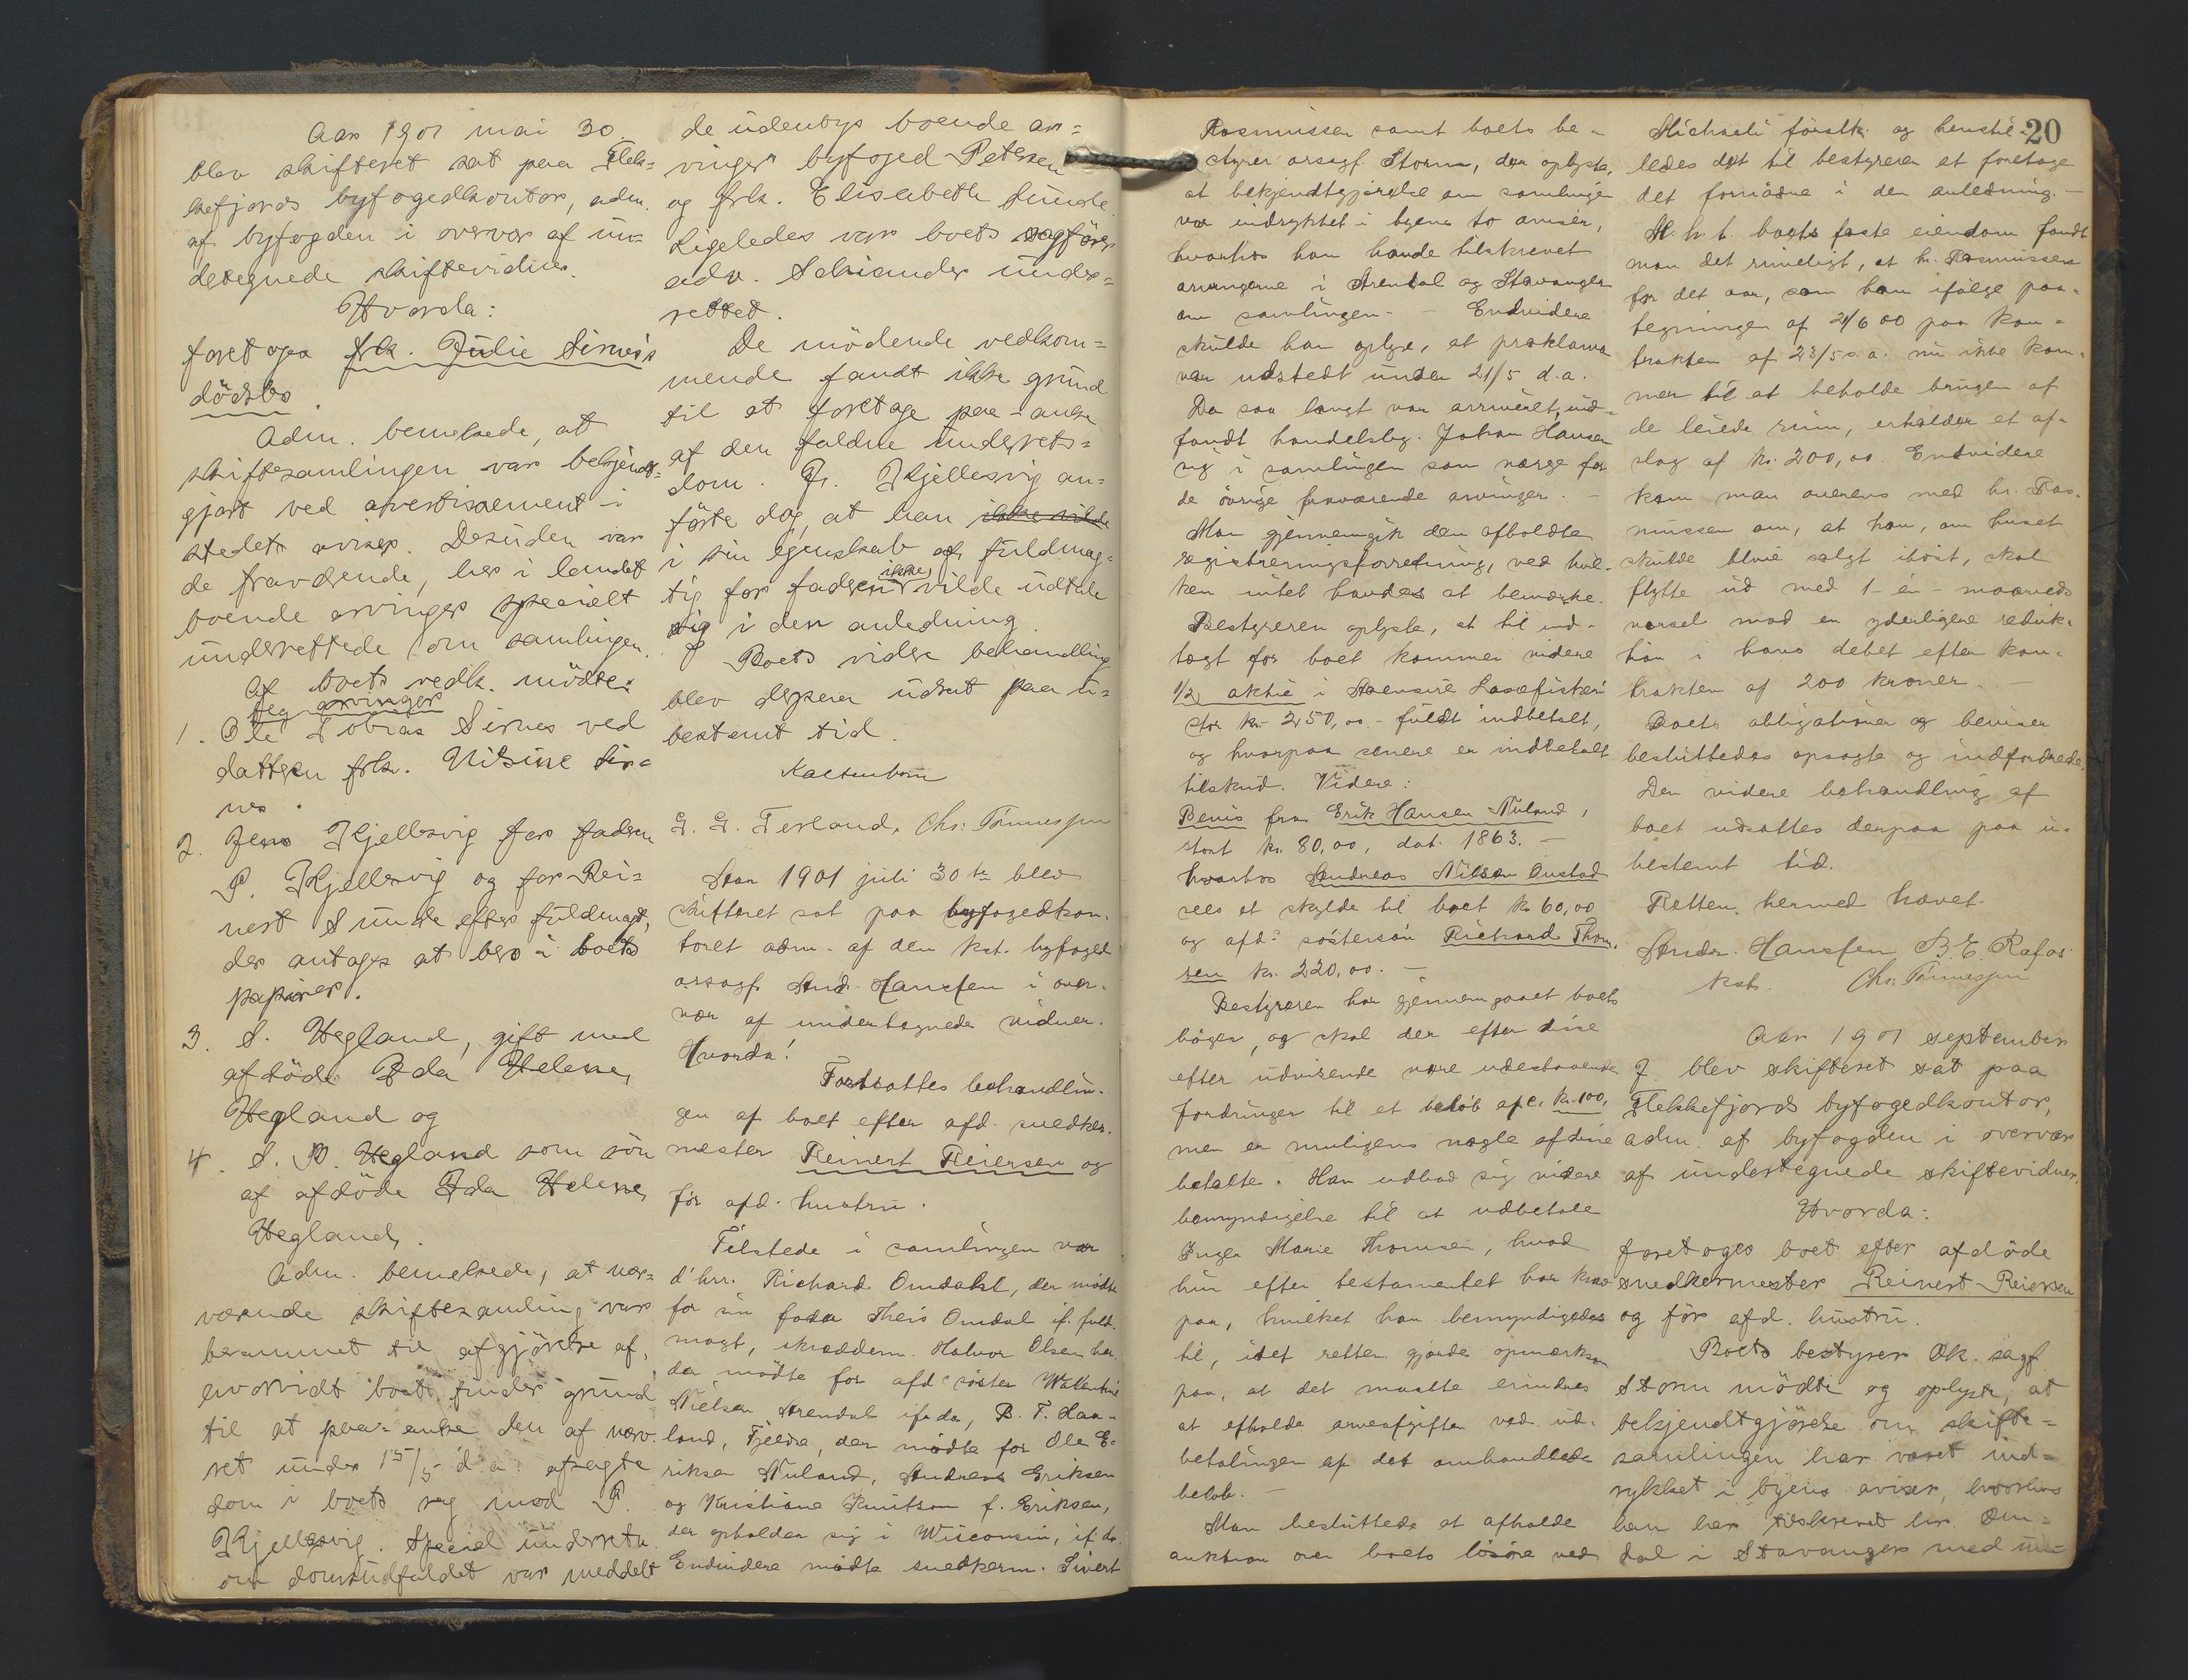 Aar 1901 mai 30.
blev skifteret sat paa Flek-
kefjords byfogedkontor, adm.
af byfogden i overvær af un-
detegnede skiftevidner.
Hvorda:
foretoges frk. Julie Sirnes's
dödsbo.
Adm. bemerkede, at
skiftesamlingen var bekjendt-
gjort ved avertissement i
stedets aviser. Desuden var
de fraværende, her i landet
boende arvinger specielt
underrettede om samlingen.
Af boets vedk. mödte:
arvinger
1. Ole Tobias Sirnes ved
datteren frk. Nilsine Sir-
nes.
2. Jens Kjellesvig for faderen
P. Kjellesvig og for Rei-
nert Sunde efter fuldmagt,
der antages at bero i boets
papirer.
3. S. Hegland, gift med
afdöde Ida Helene
Hegland og
4. S. P. Hegland som sön
af afdöde Ida Helene
Hegland.
Adm. bemerkede, at nær-
værende skiftesamling var
berammet til afgjörelse af,
hvorvidt boet finder grund
til at paa-anke den af
ret under 15/5 d.a. afsagte
dom i boets sag mod P.
Kjellesvig. Speciel underretn.
om domsudfaldet var meddelt
de udenbys boende ar-
vinger byfoged Petersen
og frk. Elisabeth Sunde.
Ligeledes var boets sagförer
adv. Schiander under-
rettet.
De mödende vedkom-
mende fandt ikke grund
til at foretage paa-anke
af den faldne underrets-
dom. Hr. Kjellesvig an-
förte dog, at han ikke vilde
i sin egenskab af fuldmæg-
tig for faderen ikke vilde udtale
sig i den anledning.
Boets videre behandling
blev derpaa udsat paa u-
bestemt tid.
Kaltenborn
G. G. Tesland. Chr. Tönnessen
Aar 1901 juli 30te blev
skifteret sat paa byfogedkon-
toret adm. af den kst. byfoged
orsagf. And. Hanssen i over-
vær af undertegnede vidner.
Hvorda!
Fortsattes behandlin-
gen af boet efter afd. snedker-
mester Reinert Reiersen og
för afd. hustru.
Tilstede i samlingen var
d'hrr. Richard Omdahl, der mödte
for sin fader Theis Omdal if. fuld-
magt, skrædderm. Halvor Olsen her
der mödte for afd's söster Wallentine
Nielsen Arendal if. do, B. T. Haa-
land, Fjeldsa, der mödte for Ole E-
riksen Nuland, Andreas Eriksen
og Kristiane Knutson f. Eriksen,
der opholder sig i Wisconsin, if. do.
Endvidere mödte snedkerm. Sivert
Rasmussen samt boets be-
styrer orsagf. Storm, der oplyste,
at bekjendtgjörelse om samlingen
var indrykket i byens to aviser,
hvorhos han havde tilskrevet
arvingerne i Arendal og Stavanger
om samlingen. — Endvidere
skulde han oplyse, at proklama
var udstedt under 21/5 d.a.
Da saa langt var arriveret, ind-
fandt handelsbg. Johan Hansen
sig i samlingen som værge for
de övrige fraværende arvinger. —
Man gjennemgik den afholdte
registreringsforretning, ved hvil-
ken intet havdes at bemærke.
Bestyreren oplyste, at til ind-
tægt for boet kommer videre
1/2 aktie i Svensire Laxefiskeri
stor kr. 250,00 - fuldt indbetalt,
og hvorpaa senere er indbetalt
tilskud. Videre:
Bevis fra Erik Hansen Nuland,
stort kr. 80,00, dat. 1863. —
hvorhos Andreas Nilsen Oustad
sees at skylde til boet kr 60,00
og afd's söstersön Richard Thom-
sen kr. 220,00. —
Bestyreren har gjennemgaaet boets
böger, og skal der efter disse
efter udvisende være udestaaende
fordringer til et belöb af c. kr. 100,
men er muligens nogle af disse
betalte. Han udbad sig videre
bemyndigelse til at udbetale
Inger Marie Thomsen, hvad
hun efter testamentet har krav
paa, hvilket han bemyndigedes
til, idet retten gjorde opmærksom
paa, at det maatte erindres
at afholde arveafgiften ved ud-
betalingen af det omhandlede
belöb. —
Man besluttede at afholde
auktion over boets lösöre ved
20
Michaeli förstk. og henstil-
ledes det til bestyreren at foretage
det fornödne i den anledning. —
M. h. t. boets faste eiendom fandt
man det rimeligt, at hr. Rasmussen
for det aar, som han ifölge paa-
tegningen af 21/6 00 paa kon-
trakten af 23/5 s.a. nu ikke kom-
mer til at beholde brugen af
de leiede rum, erholder et af-
slag af kr. 200,00. Endvidere
kom man overens med hr. Ras-
mussen om, at han, om huset
skulde blive solgt ihöst, skal
flytte ud med 1 - én - maaneds
varsel mod en yderligere reduk-
tion i hans debet efter kon-
trakten af 200 kroner. —
Boets obligationer og beviser
besluttedes opsagte og indfordrede.
Den videre behandling af
boet udsattes derpaa paa u-
bestemt tid.
Retten hermed hævet.
Andr. Hanssen B. E. Rafos
kst. Chr. Tönnessen
Aar 1901 september
7. blev skifteret sat paa
Flekkefjords byfogedkontor,
adm. af byfogden i overvær
af undertegnede skiftevidner.
Hvorda:
foretoges boet efter afdöde
snedkermester Reinert Reiersen
og för afd. hustru.
Boets bestyrer ok. sagf.
Storm mödte og oplyste, at
bekjendtgjörelse om skifte-
samlingen har været ind-
rykket i byens aviser, hvorhos
han har tilskrevet hr. Om-
dal i Stavanger med un-